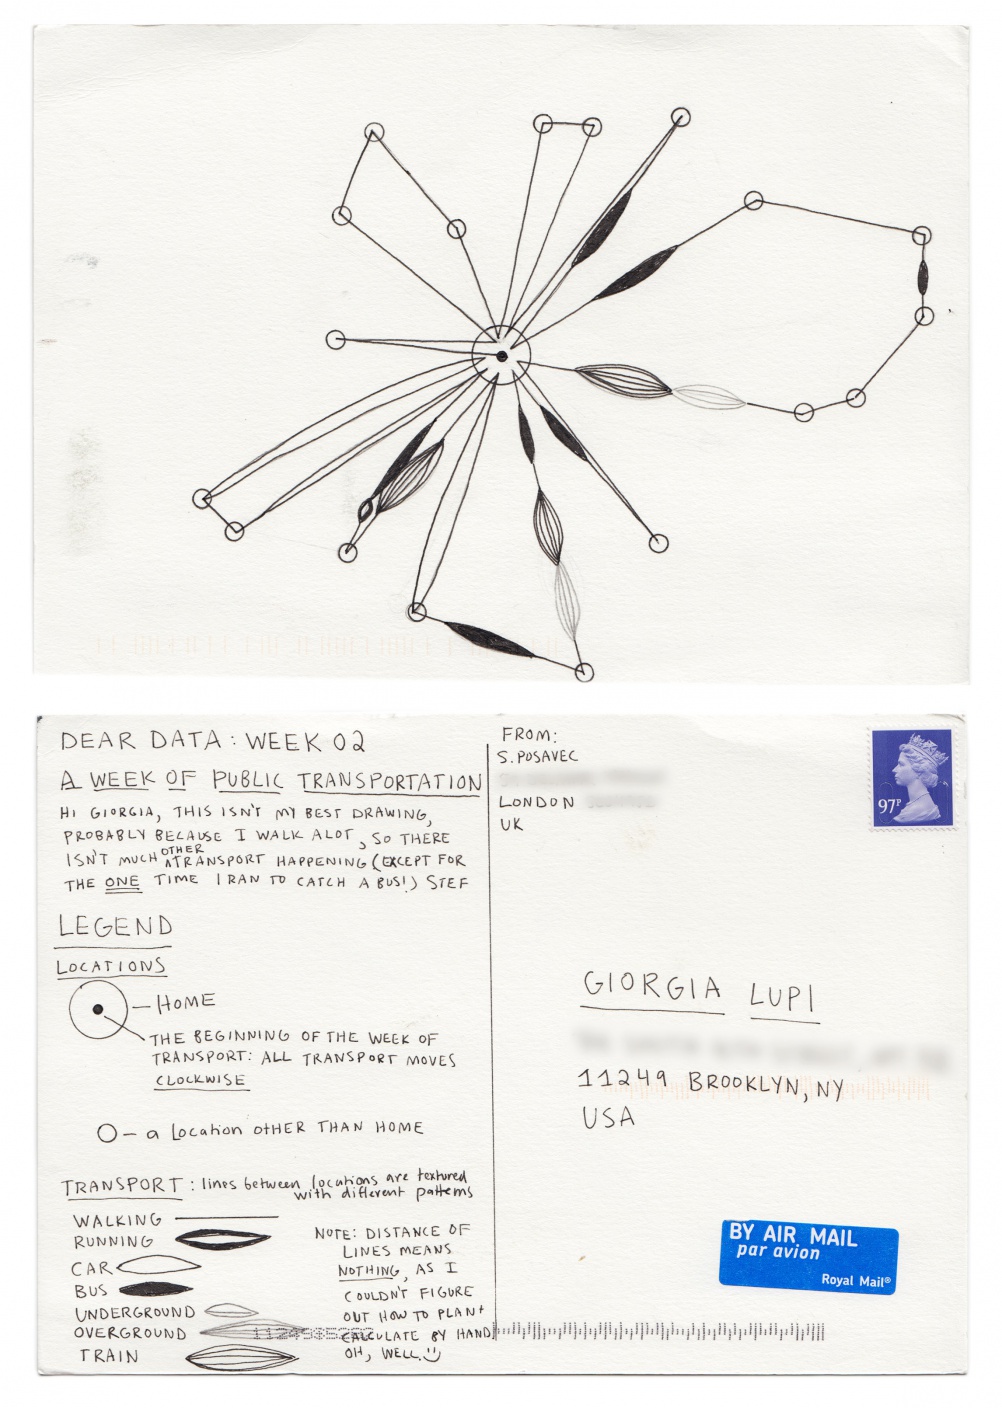 DEAR DATA: WEEK 02
A WEEK OF PUBLIC TRANSPORTATION
HI GIORGIA, THIS ISN'T MY BEST DRAWING,
PROBABLY BECAUSE I WALK ALOT, SO THERE
ISN'T MUCH OTHER TRANSPORT HAPPENING (EXCEPT FOR
THE ONE TIME I RAN TO CATCH A BUS!) STEF
LEGEND
LOCATIONS
HOME
THE BEGINNING OF THE WEEK OF
TRANSPORT: ALL TRANSPORT MOVES
CLOCKWISE
O – a Location OTHER THAN HOME
TRANSPORT: lines between locations are textured
with different patterns
WALKING
RUNNING
CAR
BUS
UNDERGROUND
OVERGROUND
TRAIN
NOTE: DISTANCE OF
LINES MEANS
NOTHING, AS I
COULDN'T FIGURE
OUT HOW TO PLAN +
CALCULATE BY HAND
OH, WELL. :)
FROM:
S. POSAVEC
LONDON
UK
97P
GIORGIA LUPI
11249 BROOKLYN, NY
USA
BY AIR MAIL
par avion
Royal Mail®